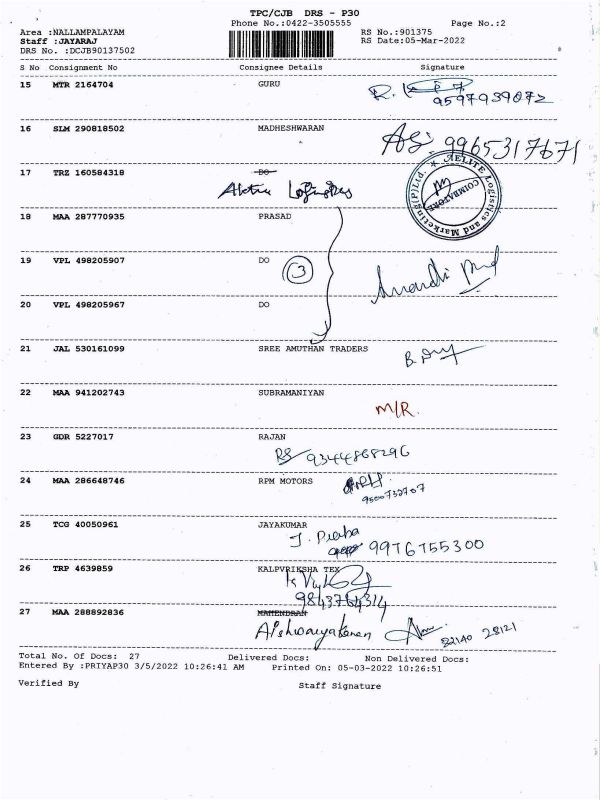 TPC/CJB DRS - P30
Phone No.:0422-3505555 Page No.:2
Area :NALLAMPALAYAM RS No.:901375
Staff :JAYARAJ RS Date:05-Mar-2022
DRS No. :DCJB90137502
S No Consignment No Consignee Details Signature
15 MTR 2164704 GURU
9597939072
16 SLM 290818502 MADHESHWARAN
9965317671
17 TRZ 160584318 DO
AELITE Logistics and Marketing(P)Ltd.
COIMBATORE
18 MAA 287770935 PRASAD
19 VPL 498205907 DO 3
20 VPL 498205967 DO
21 JAL 530161099 SREE AMUTHAN TRADERS
22 MAA 941202743 SUBRAMANIYAN
M/R.
23 GDR 5227017 RAJAN
9344868296
24 MAA 286648746 RPM MOTORS
9500732707
25 TCG 40050961 JAYAKUMAR
9976755300
26 TRP 4639859 KALPVRIKSHA TEX
9843764314
27 MAA 288892836 MAHENDRAN
22140 28121
Total No. Of Docs: 27 Delivered Docs: Non Delivered Docs:
Entered By :PRIYAP30 3/5/2022 10:26:41 AM Printed On: 05-03-2022 10:26:51
Verified By Staff Signature